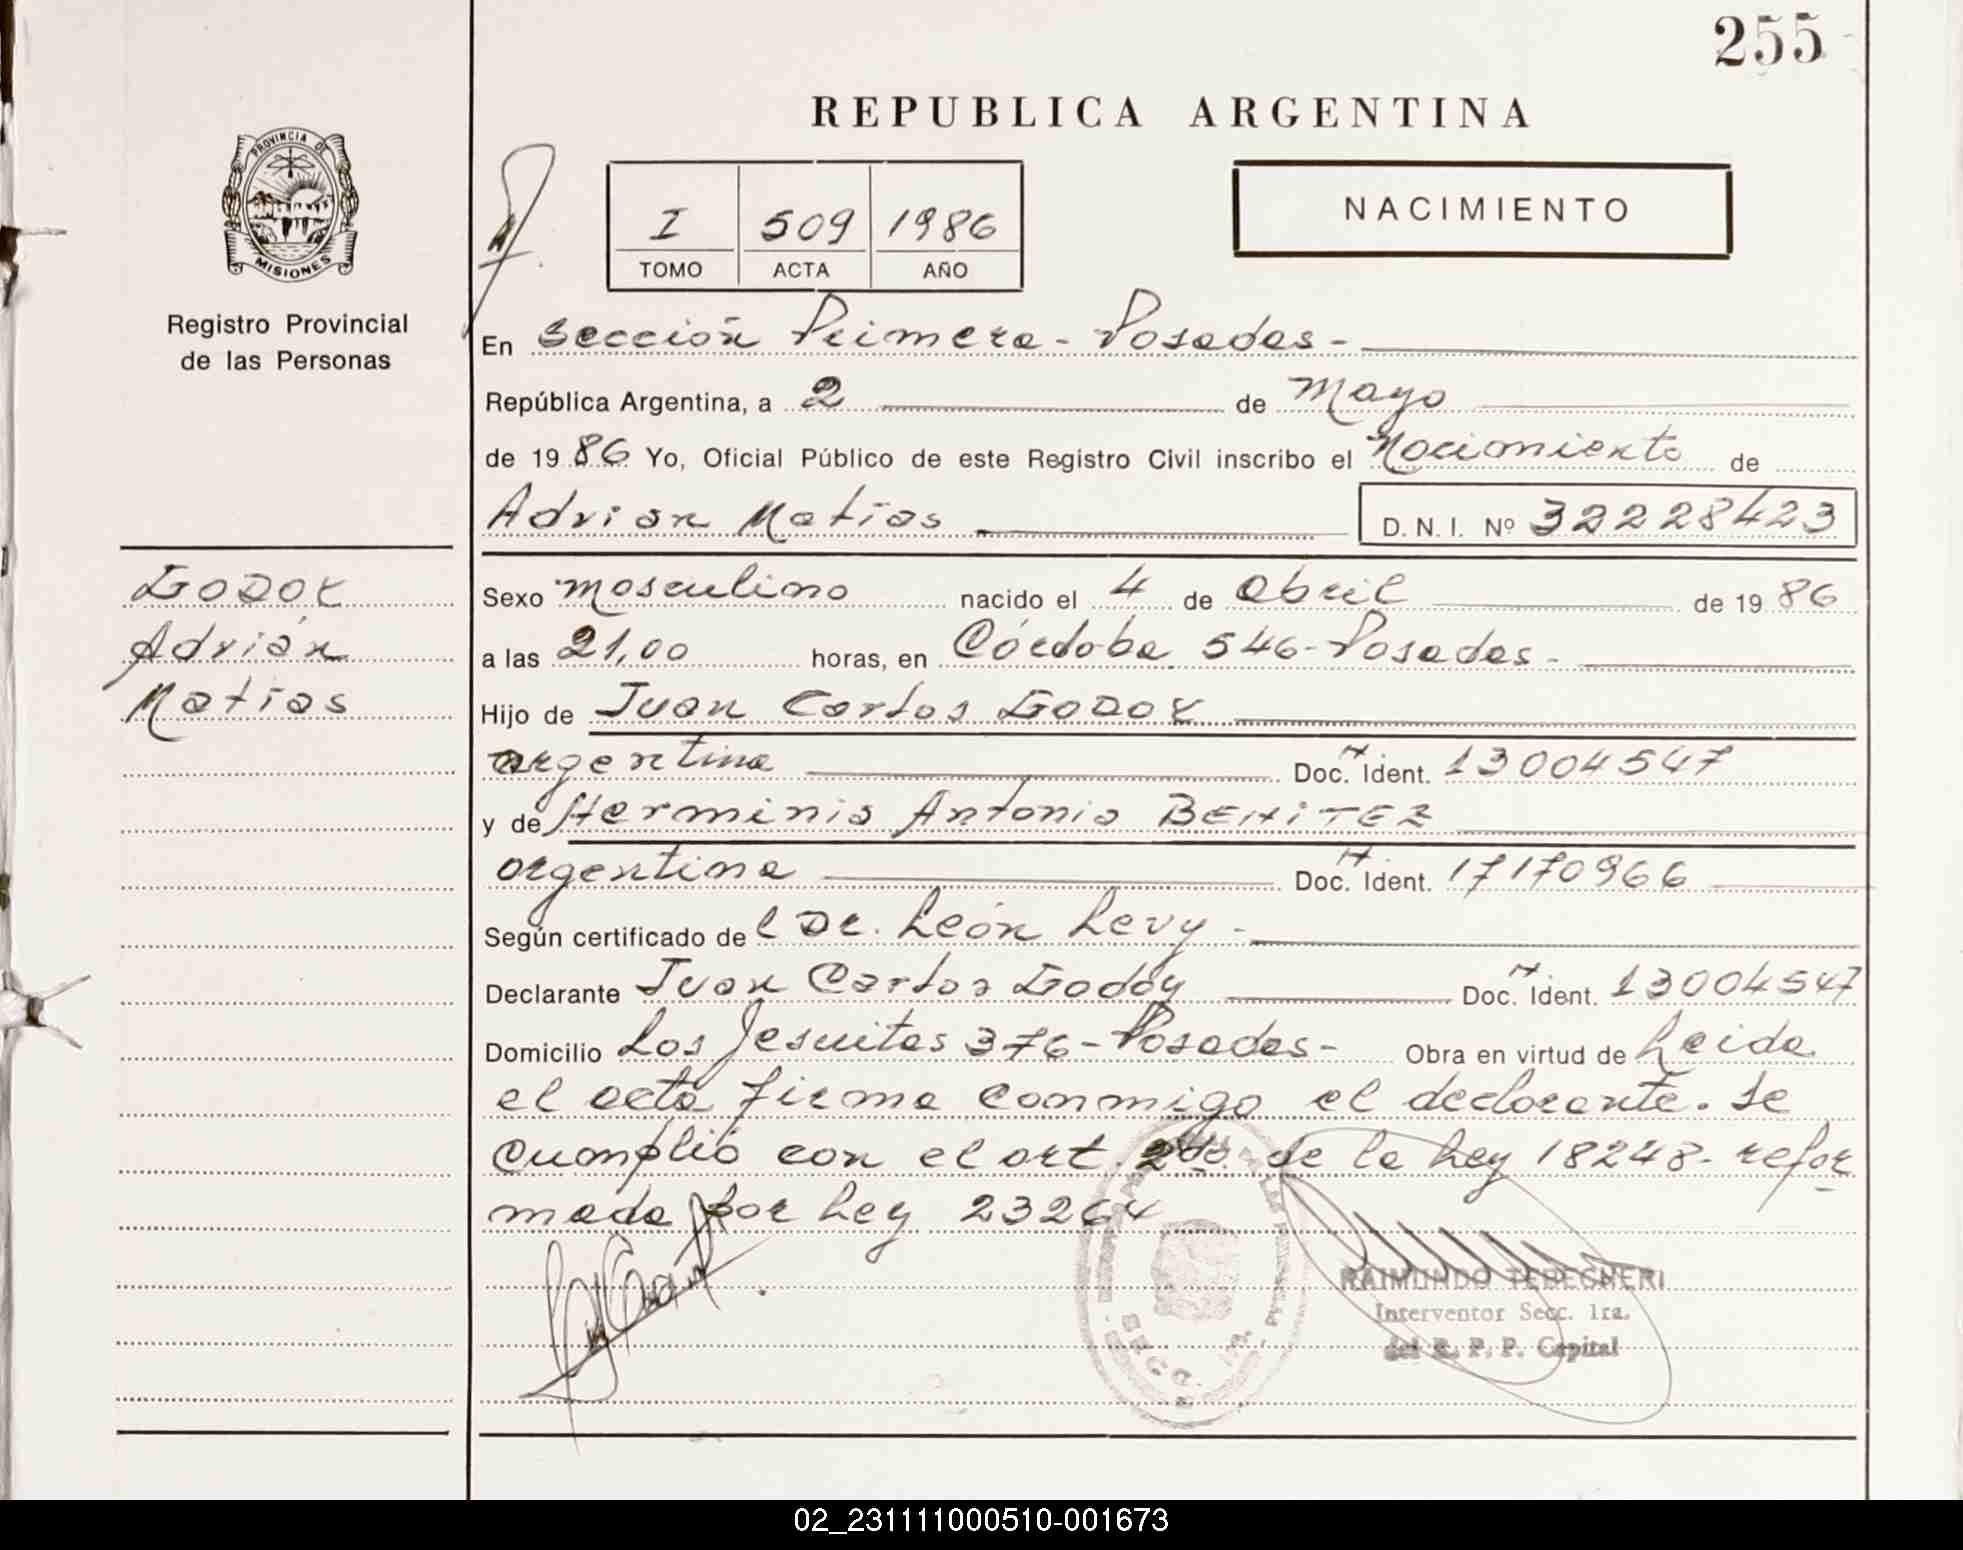 255
REPUBLICA ARGENTINA
PROVINCIA DE
MISIONES
Registro Provincial
de las Personas
I 509 1986
TOMO ACTA AÑO
NACIMIENTO
En Sección Primera - Posadas -
República Argentina, a 2 de Mayo
de 1986 Yo, Oficial Público de este Registro Civil inscribo el Nacimiento de
Adrian Matías D. N. I. Nº 32228423
GODOY
Adrián
Matías
Sexo masculino nacido el 4 de abril de 1986
a las 21,00 horas, en Córdoba 546 - Posadas -
Hijo de Juan Carlos GODOY
argentina Doc. Ident. 13004547
y de Herminia Antonia BENITEZ
argentina Doc. Ident. 17170966
Según certificado del Dr. León Levy -
Declarante Juan Carlos Godoy Doc. Ident. 13004547
Domicilio Los Jesuitas 376 - Posadas - Obra en virtud de Leida
el acta firma conmigo el declarante. Se
cumplió con el art. 2do. de la Ley 18248 - refor
mada por Ley 23264
SECC. 1RA.
RAIMUNDO
Interventor Secc. 1ra.
del R. P. P. Capital
02_231111000510-001673